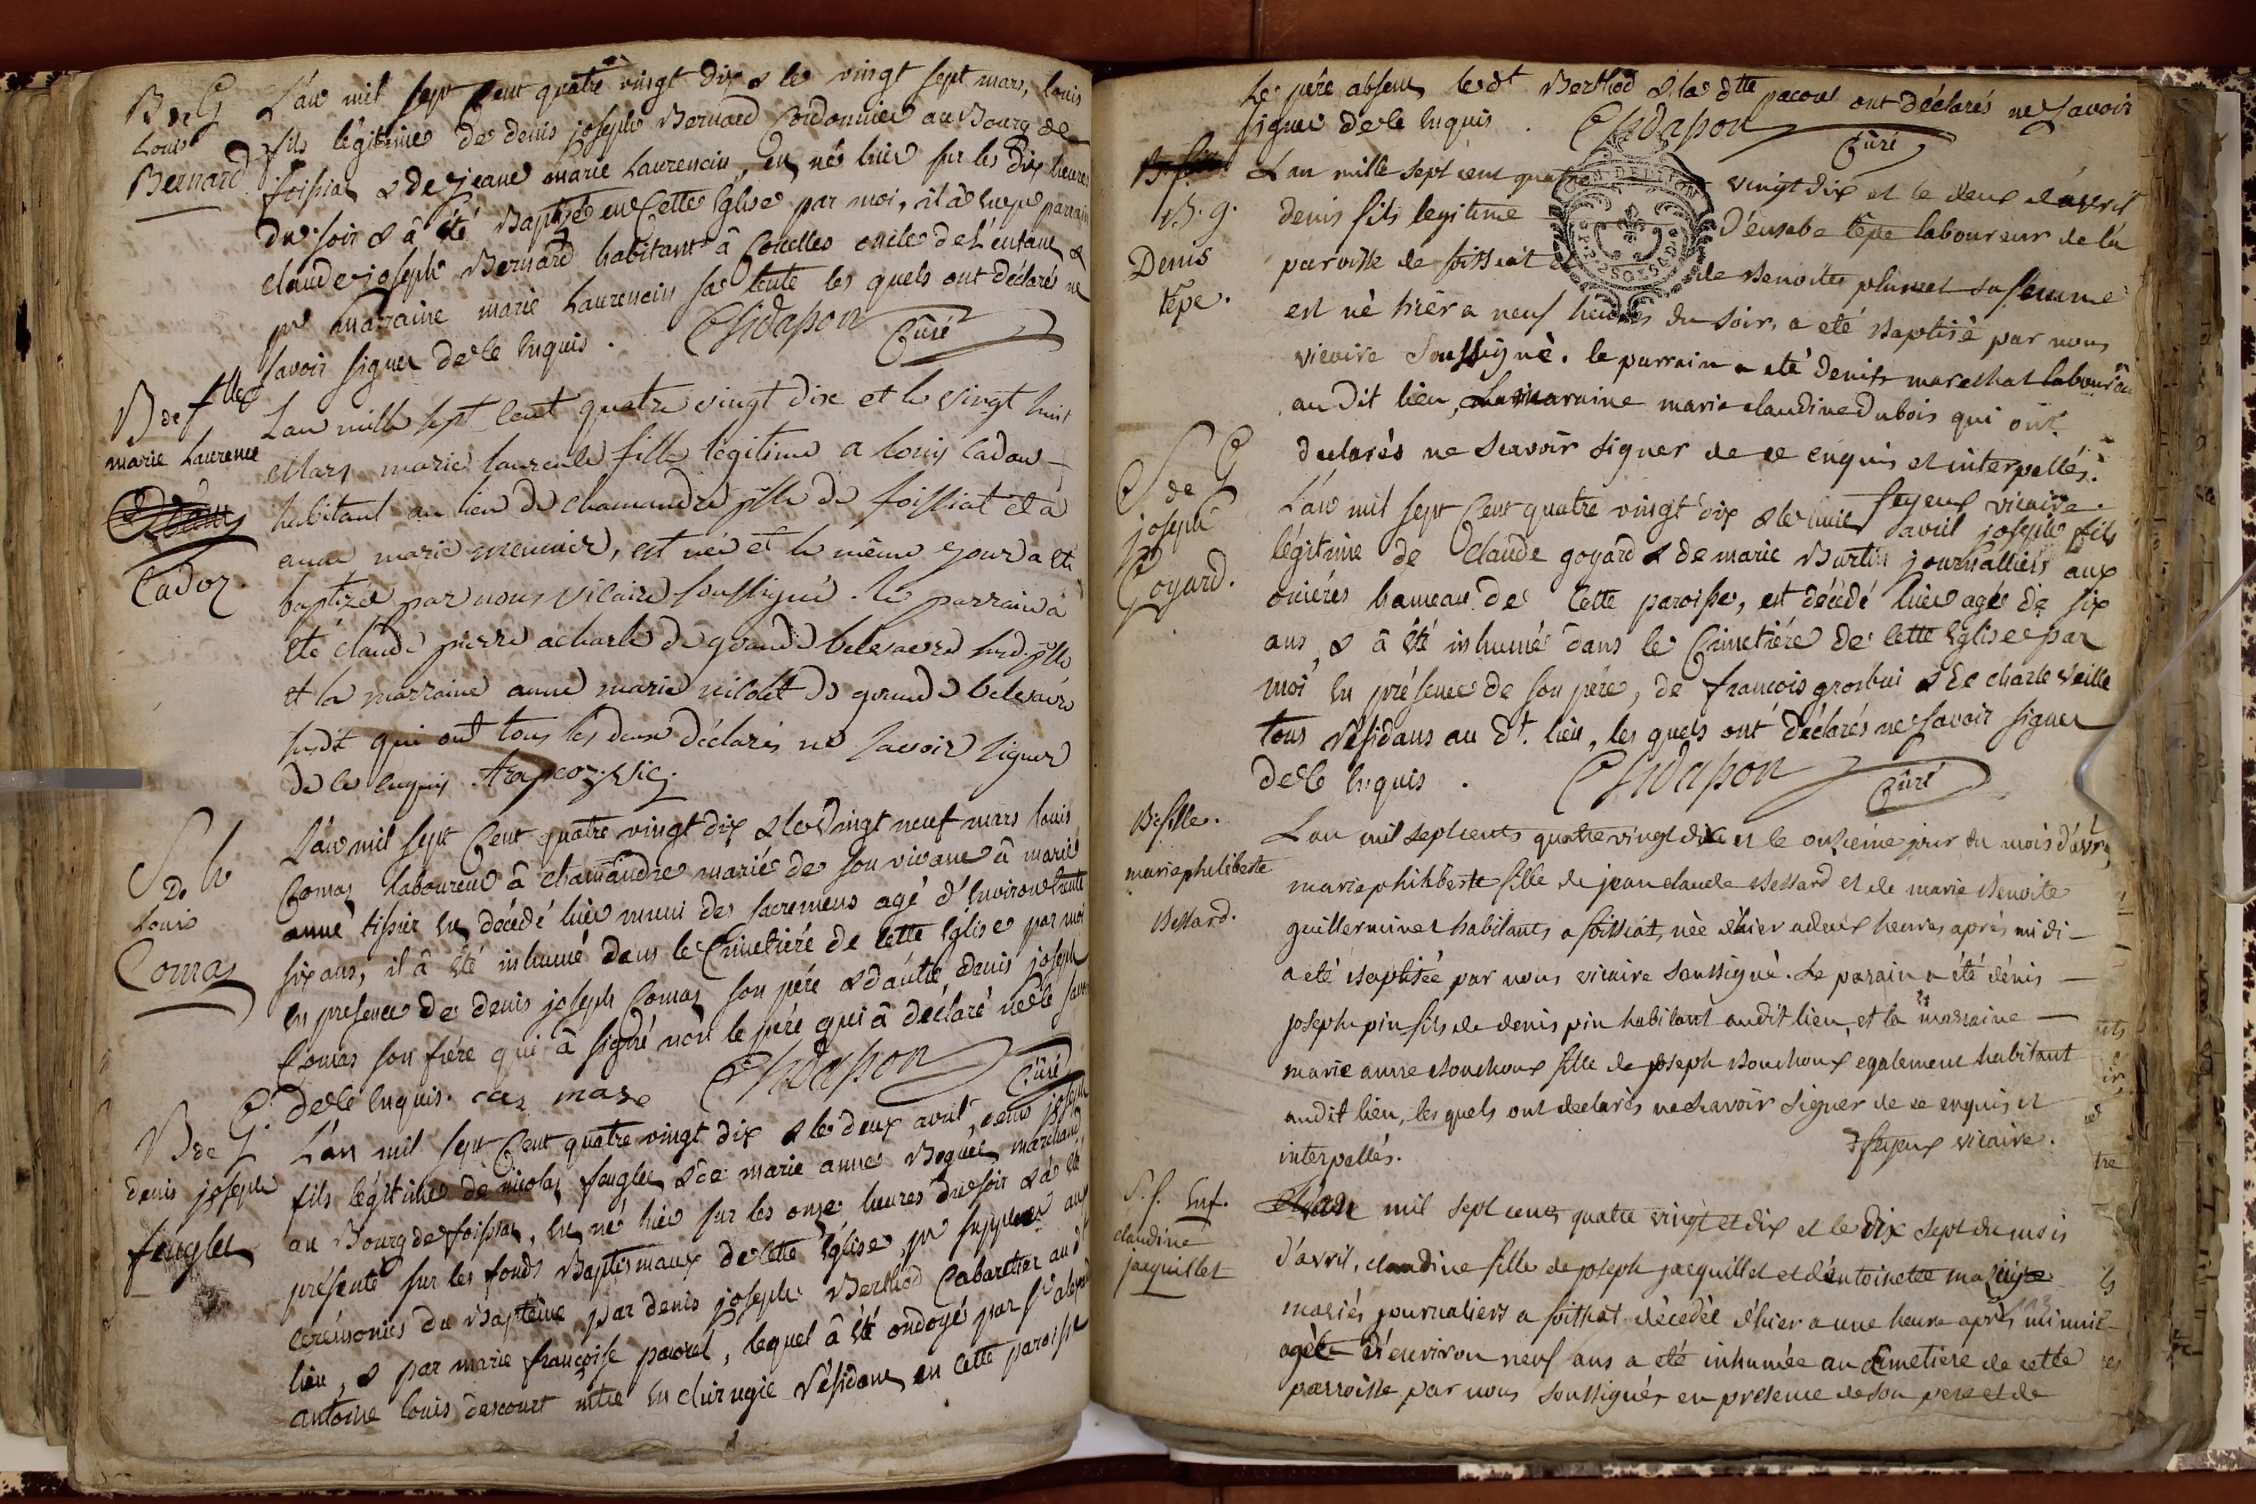 B de G
Louis
Bernard
L'an mil sept Cent quatre vingt dix & le vingt sept mars, louis
fils légitime de denis joseph Bernard Cordonnier au Bourg de
foissiat & de jeane marie Laurencin, en né hier sur les dix heures
du soir & â été Baptisé en Cette Eglise par moi, il à eu pr parrain
claude joseph Bernard habitant â Corcelles oncle de L'enfant &
pr marraine marie Laurencin sa tente les quels ont déclarés ne
savoir signer de ce Enquis. Chdapon Curé
B de flle
marie Laurence
Cadoz
Lan mille sept cent quatre vingt dix et le vingt huit
Mars marie laurence fille légitime a louis Cadoz
habitant au lieu de chamandre psse de foissiat et a
anne marie meunier, est née et le même jour a été
baptizée par nous vicaire soussigné. le parrain a
été claude pierre acharle de grande belevavre sud. psse
et la marraine anne marie nicolet de grande belevavre
susdt qui ont tous les deux déclarés ne savoir signer
de ce enquis. trapcoz. Vic.
S de h
Louis
Comas
L'an mil sept Cent quatre vingt dix & le vingt neuf mars louis
Comas laboureur â chamandre mariés de son vivant â marie
anne tissier en décédé hier muni des sacremens agé d'environ trente
six ans, il â été inhumé dans le Cimetiére de cette Eglise par moi
En presence de denis joseph Comas son pére & d'autre denis joseph
Comas son frére qui â signé non le pére qui â declaré ne le savoir
de ce Enquis. Chdapon Curé
B de G.
denis joseph
feuglet
L'an mil sept Cent quatre vingt dix & le deux avril, denis joseph
fils légitime de nicolas feuglet & de marie anne Boguet marchand
au Bourg de foissiat, en né hier sur les onze heures du soir & â été
présenté sur les fonds Baptismaux de cette Eglise pr suppléer aux
cerémonies du Baptême par denis joseph Berthod Cabaretier au dt
lieu, & par marie françoise pacoud, lequel â été ondoyé par sr
antoine louis descourt mtre En chirurgie résidant en cette paroisse
Le pére absent le dt Berthod & la dtte pacoud ont déclarés ne savoir
signer de ce Enquis. Chdapon Curé
B. g.
Denis
tépe.
Lan mille sept cent quatre vingt dix et le deux d'avril
denis fils legitime D'eusabe tépe laboureur de la
paroisse de foissiat & de Benoite plumet sa femme
est né hier a neuf heures du soir, a été Baptisé par nous
vicaire soussigné. le parrain a été denis marechal laboureur
au dit lieu, la maraine marie claudine Dubois qui ont
declarés ne scavoir signer de ce enquis et interpellés.
feyeux vicaire.
S de G
joseph
Goyard.
L'an mil sept Cent quatre vingt dix & le huit avril joseph fils
légitime de Claude goyard & de marie Burtin journalliers aux
oniéres hameau de Cette paroisse, est décédé hier agé de six
ans, & â été inhumé dans le Cimetiére de cette Eglise par
moi En présence de son pére, de françois grosbui & de charle veille
tous résidans au dt. lieu, les quels ont déclarés ne savoir signer
de ce Enquis. Chdapon Curé
B. fille.
marie philiberte
Bessard.
Lan mil sept cents quatre vingt dix et le onzieme jour du mois d'avril,
marie philiberte fille de jean claude Bessard et de marie Benoite
guillerminet habitants a foissiat, née d'hier a deux heures aprés midi
a été Baptisée par nous vicaire soussigné. Le parain a été dénis
joseph pin fils de denis pin habitant audit lieu, et la marraine
marie anne Bouchoux fille de joseph Bouchoux egalement habitant
audit lieu, les quels ont declarés ne scavoir signer de ce enquis et
interpellés. feyeux vicaire.
S. f. Enf.
claudine
jacquillet
L'an mil sept cents quatre vingt et dix et le dix sept du mois
d'avril, claudine fille de joseph jacquillet et d'antoinette
mariés journaliers a foissiat décédée d'hier a une heure aprés minuit
agée d'environ neuf ans a été inhumée au cimetiere de cette
parroisse par nous soussignés en presence de son pere et de